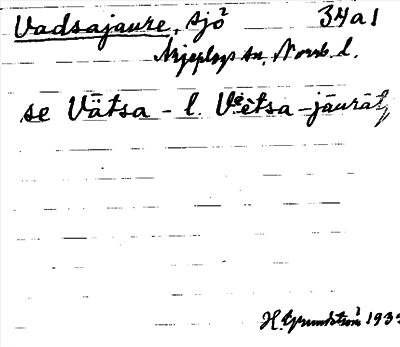 Vadsajaure, sjö² 34a1
Arjeplogs sn. Norrb. l.
se Vätsa - l. Vètsa-jäurätj
H. Grundström 1935